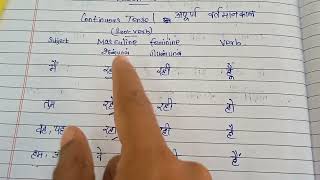 Continuous Tense अपूर्ण वर्तमानकाल
(Root verb)
Subject Masculine Feminine Verb
ஆண்பால் பெண்பால்
मैं रही हूँ
तुम रहे रही हो
वह, यह रही है
हम, वे रही हैं